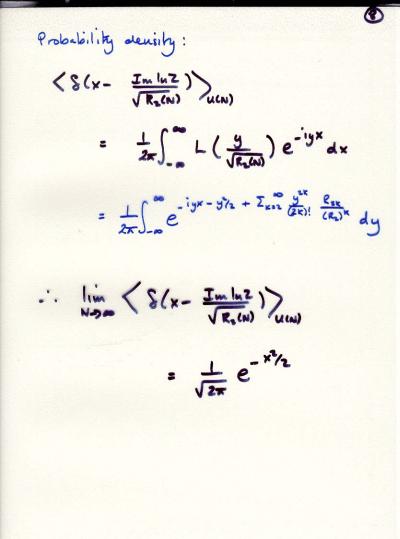 8
Probability density:
⟨δ(x- Im ln Z / √R₂(N))⟩U(N)
= 1/2π ∫_{-∞}^{∞} L(y/√R₂(N)) e^{-iyx} dx
= 1/2π ∫_{-∞}^{∞} e^{-iyx - y²/2 + Σ_{k=2}^{∞} y^{2k}/(2k)! R_{2k}/(R₂)^k} dy
∴ lim_{N→∞} ⟨δ(x- Im ln Z / √R₂(N))⟩U(N)
= 1/√2π e^{-x²/2}